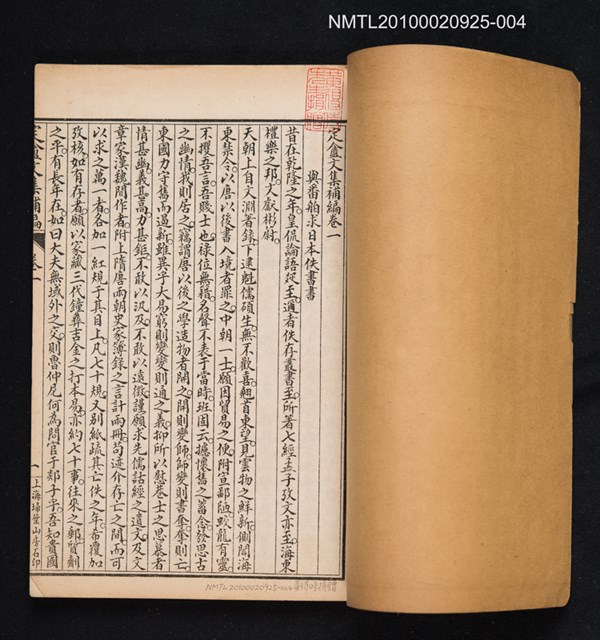 NMTL20100020925-004
定盦文集補編卷一
與番舶求日本佚書書
昔在乾隆之年皇侃論語疏至邇者佚存叢書至所著七經孟子攷文亦至海東
禮樂之邦文獻彬蔚
天朝上自文淵著錄下逮魁儒碩生無不歡喜翹首東望見雲物之鮮新側聞海
東禁令以唐以後書入境者罪之中朝一士願因貿易之便附宣鄙陋蛟龍有靈
不攫吾言吾賤士也祿位無籍名聲不表于當時班固云攄懷舊之蓄念發思古
之幽情我則居之竊謂唐以後之學造物者開之開則變師師變則書奪奪則亡
東國力守舊而遏新雖異乎大易窮則變變則通之義抑所以慰卷士之思慕者
情甚幽義甚高力甚鉅不敢以汎及不敢以遠徵謹願求先儒詁經之遺文及文
章家漢魏間作者附上隋唐兩朝史家簿錄之言計兩冊苟迹介存亡之間而可
以求之萬一者各加一紅規于其目上凡七十規又別紙疏其亡佚之年希覆加
攷核如有存者願以家藏三代鐘彝吉金之打本易亦約七十事往來之郵質劑
之平有長年在如曰大夫無域外之交則曹仲尼何為問官于郯子乎吾知貴國
定盦文集補編
卷一
一
上海埽葉山房石印
NMTL20100020925-004